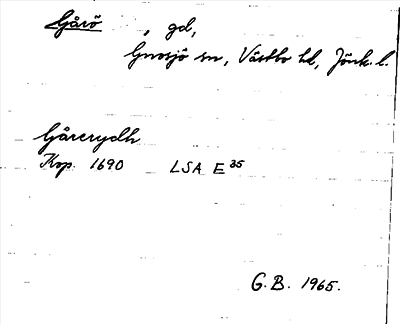 Gårö , gd,
Gnosjö sn, Västbo hd, Jönk. l.
Gårerydh
Kop. 1690 LSA E 35
G. B. 1965.